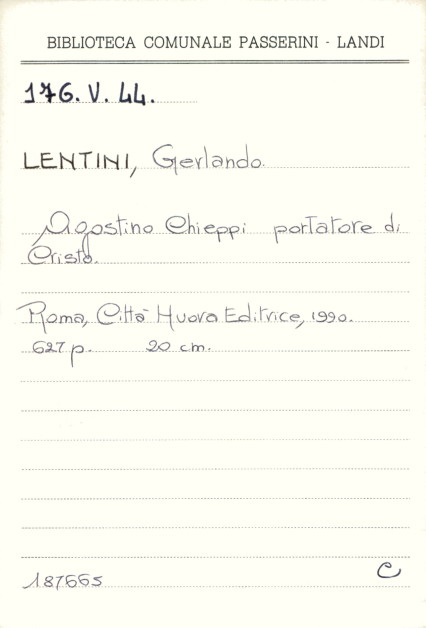 BIBLIOTECA COMUNALE PASSERINI - LANDI
176.V.44.
LENTINI, Gerlando.
Agostino Chieppi portatore di
Cristo.
Roma, Città Nuova Editrice, 1990.
627 p. 20 cm.
187665
C